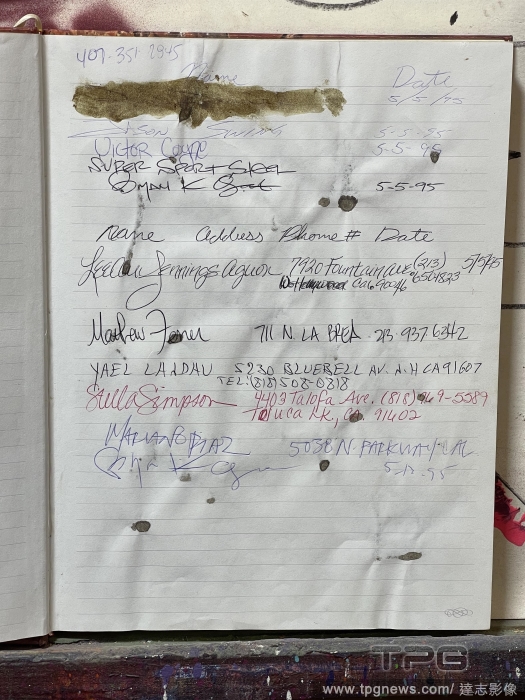 407-351-2945
Name Date
5/5/95
5-5-95
Victor Coupe 5-5-95
SUPER SPORT STEEL
5-5-95
name address Phone # Date
LeeAnn Jennings Aguon 7920 Fountain Ave (213) 5/5/95
W Hollywood Ca. 90046 6564823
Mathew 711 N. LA BREA 213 937 6342
YAEL LANDAU 5230 BLUEBELL AV. N.H CA 91607
TEL: (818) 508-0818
Stella Simpson 4403 Talofa Ave. (818) 769-5589
Toluca Lk, CA. 91402
MARIANO DIAZ 5058 N. PARKWAY CAL
95
TPG
www.tpgnews.com / 達志影像